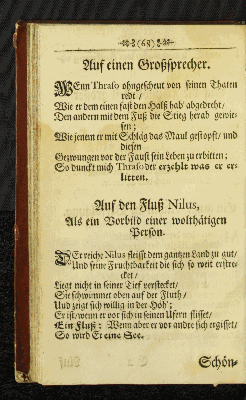 (68)
Auf einen Großsprecher.
WEnn Thraso ohngescheut von seinen Thaten
redt /
Wie er dem einen fast den Halß hab' abgedreht /
Den andern mit dem Fuß die Stieg herab gewie-
sen ;
Wie jenem er mit Schlag das Maul gestopft / und
diesen
Gezwungen vor der Faust sein Leben zu erbitten ;
So dunckt mich Thraso der erzehlt was er er-
litten.
Auf den Fluß Nilus,
Als ein Vorbild einer wolthätigen
Person.
DEr reiche Nilus fleisst dem gantzen Land zu gut /
Und seine Fruchtbarkeit die sich so weit erstre-
cket /
Liegt nicht in seiner Tief verstecket /
Sie schwimmet oben auf der Fluth /
Und zeigt sich willig in der Höh' ;
Er ist / wenn er vor sich in seinen Ufern fliesset /
Ein Fluß : Wenn aber er vor andre sich ergiesset /
So wird Er eine See.
Schön-